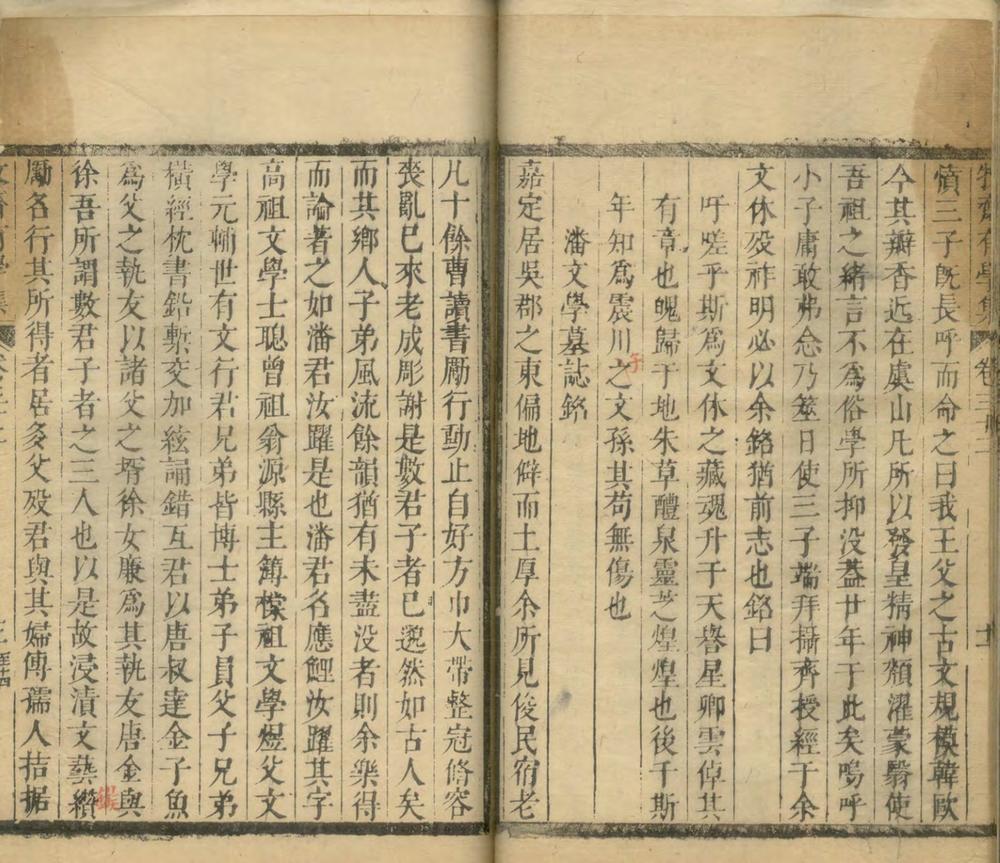 牧齋有學集 卷三十二
憤三子旣長呼而命之曰我王父之古文規模韓歐
今其瓣香近在虞山凡所以發皇精神頮濯蒙翳使
吾祖之緒言不爲俗學所抑没葢廿年于此矣嗚呼
小子庸敢弗念乃筮日使三子端拜攝齊授經于余
文休歿祚明必以余銘猶前志也銘曰
吁嗟乎斯爲文休之藏魂升于天譽星卿雲倬其
有章也魄歸于地朱草醴泉靈芝煌煌也後千斯
年知爲震川之文孫其苟無傷也
子
潘文學墓誌銘
嘉定居吳郡之東偏地僻而土厚余所見俊民宿老
凡十餘曹讀書勵行動止自好方巾大帶整冠脩容
喪亂已來老成彫謝是數君子者已邈然如古人矣
而其鄉人子弟風流餘韻猶有未盡没者則余樂得
而論著之如潘君汝躍是也潘君名應鯉汝躍其字
高祖文學士聰曾祖翁源縣主簿檬祖文學煜父文
學元輔世有文行君兄弟皆博士弟子員父子兄弟
橫經枕書鉛槧交加絃誦錯互君以唐叔達金子魚
爲父之執友以諸父之壻徐女廉爲其執友唐金與
徐吾所謂數君子者之三人也以是故浸漬文藝纘
勵名行其所得者居多父歿君與其婦傅孺人拮据